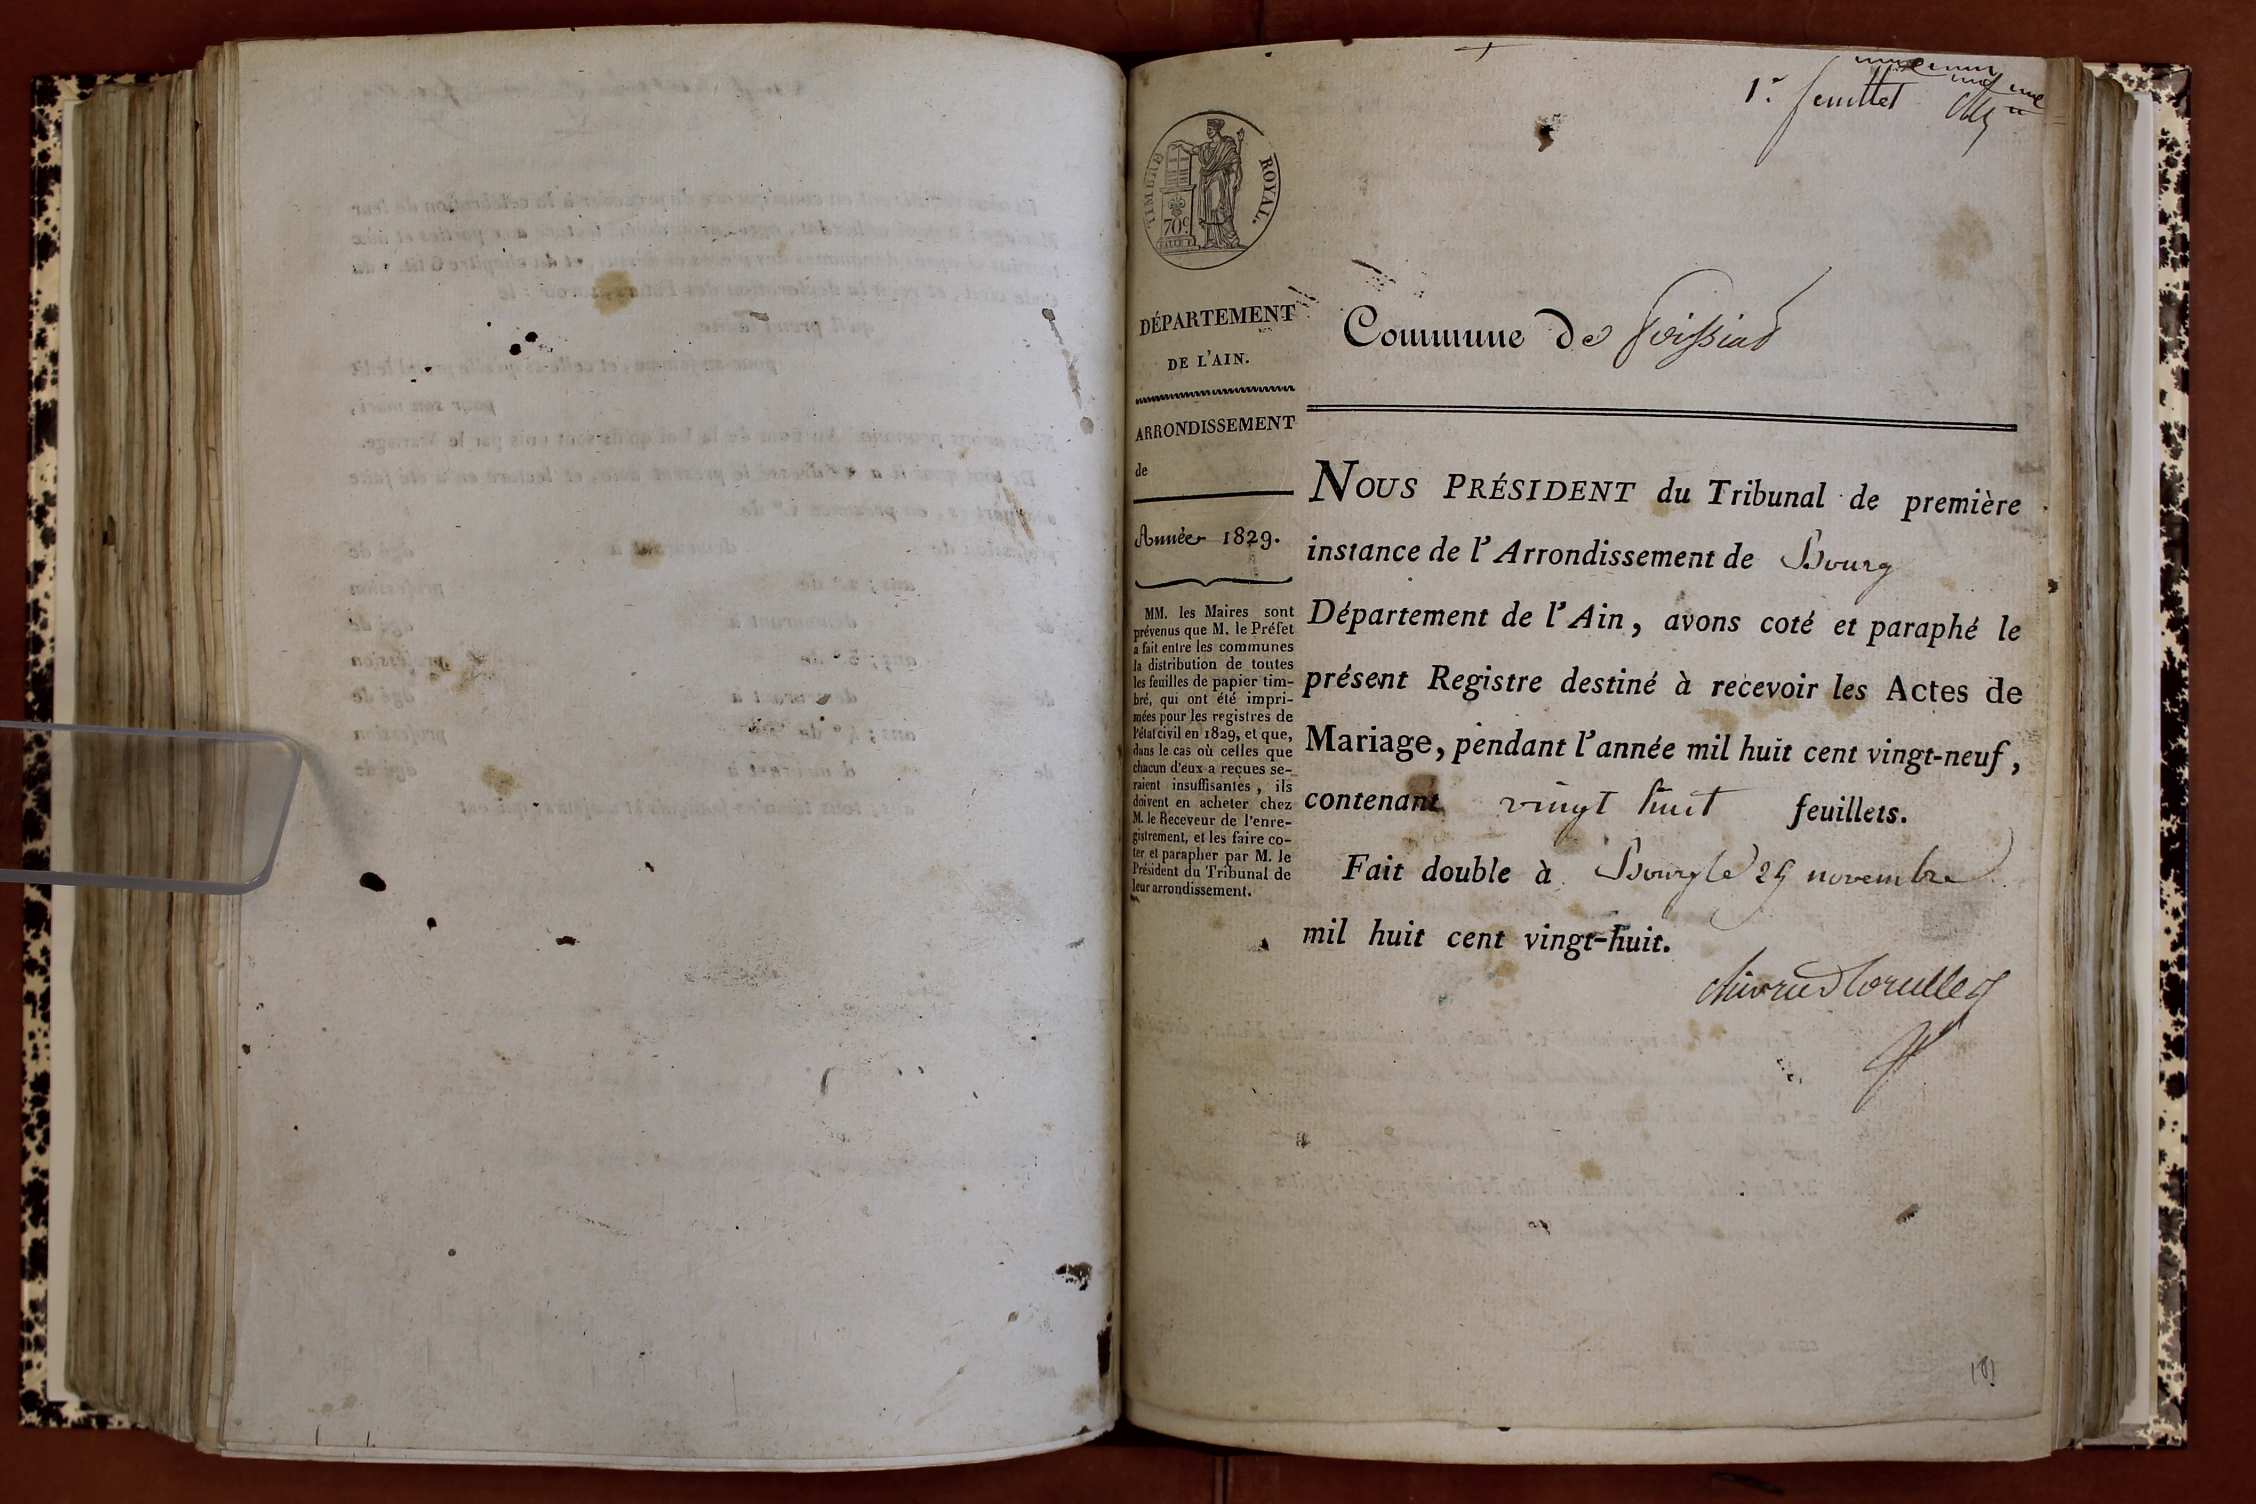 1.r feuillet
TIMBRE ROYAL.
70c
DÉPARTEMENT
DE L'AIN.
ARRONDISSEMENT
de
Année 1829.
MM. les Maires sont
prévenus que M. le Préfet
a fait entre les communes
la distribution de toutes
les feuilles de papier tim-
bré, qui ont été impri-
mées pour les registres de
l'état civil en 1829, et que,
dans le cas où celles que
chacun d'eux a reçues se-
raient insuffisantes, ils
doivent en acheter chez
M. le Receveur de l'enre-
gistrement, et les faire co-
ter et parapher par M. le
Président du Tribunal de
leur arrondissement.
Commune de Foissiat
NOUS PRÉSIDENT du Tribunal de première
instance de l'Arrondissement de Bourg
Département de l'Ain, avons coté et paraphé le
présent Registre destiné à recevoir les Actes de
Mariage, pendant l'année mil huit cent vingt-neuf,
contenant vingt huit feuillets.
Fait double à Bourg le 29 novembre
mil huit cent vingt-huit.